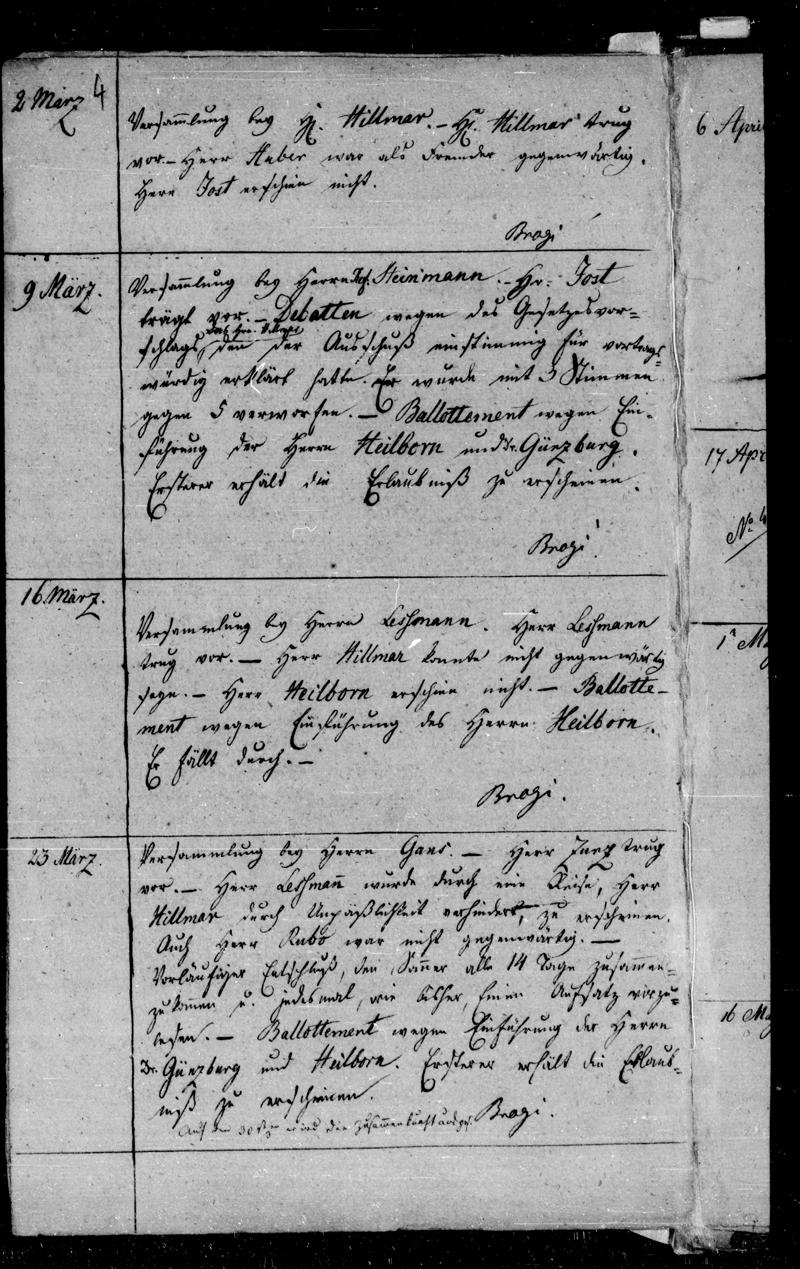 2 März 4
Versam̅lung bey H. Hillmar. – H. Hillmar trug
vor. – Herr Haber war als Fremder gegenwärtig.
Herr Jost erschien nicht.
Brogi
9 März.
Versam̅lung bey Herrn Heinmann. – Hr. Jost
trägt vor. – Debatten wegen des Gesetzesvor=
schlags, den der Ausschuß einstimmig für vortrags=
würdig erklärt hatte. Er wurde mit 3 Stimmen
gegen 5 verworfen. – Ballottement wegen Ein-
führung der Herrn Heilborn und Dr. Günzburg.
Ersterer erhält die Erlaubniß zu erscheinen.
Brogi.
16. März.
Versammlung bey Herrn Lessmann. Herr Lessmann
trug vor. – Herr Hillmar konnte nicht gegenwärtig
seyn. – Herr Heilborn erschien nicht. – Ballotte-
ment wegen Einführung des Herrn Heilborn.
Er fällt durch. –
Brogi.
23 März.
Versammlung bey Herrn Gans. – Herr Zunz trug
vor. – Herr Lessman̅ wurde durch eine Reise, Herr
Hillmar durch Unpäßlichkeit verhindert, zu erscheinen.
Auch Herr Rubo war nicht gegenwärtig. –
Vorläufiger Entschluß, den Som̅er alle 14 Tage zusammen=
zukommen u. jedesmal, wie bisher, einen Aufsatz vorzu=
lesen. – Ballottement wegen Einführung der Herrn
Dr. Günzburg und Heilborn. Ersterer erhält die Erlaub=
niß zu erscheinen.
Brogi.
Auf den 30 wird die Zusammenkunft ausges.
6 Apri
17 Apr
No. 4
1 Ma
16 Ma